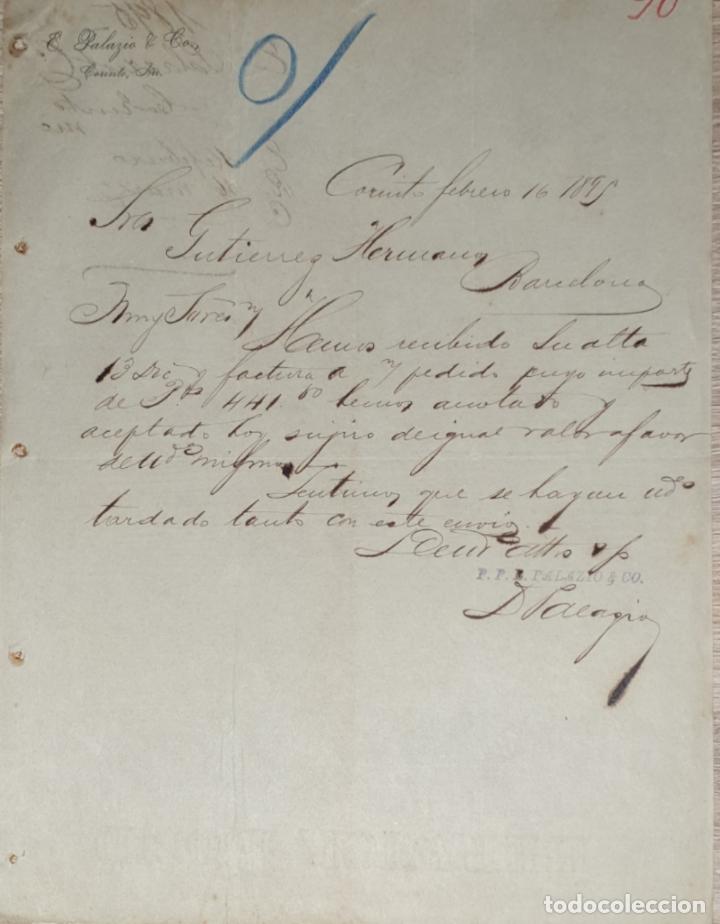 E. Palazio & Co.
Corinto, Nic.
Corinto febrero 16 1895
Sres Gutierrez Hermanos
Barcelona
Muy Sres n/
Hemos recibido su atta
13 Dic y factura a n/ pedido cuyo importe
de Pts 441.80 hemos anotado y
aceptado hoy su giro de igual valor a favor
de Uds mismos.
Sentimos que se hayan Uds
tardado tanto con este envio.
De Uds attos
P. P. E. PALAZIO & CO.
D Palazio
todocoleccion